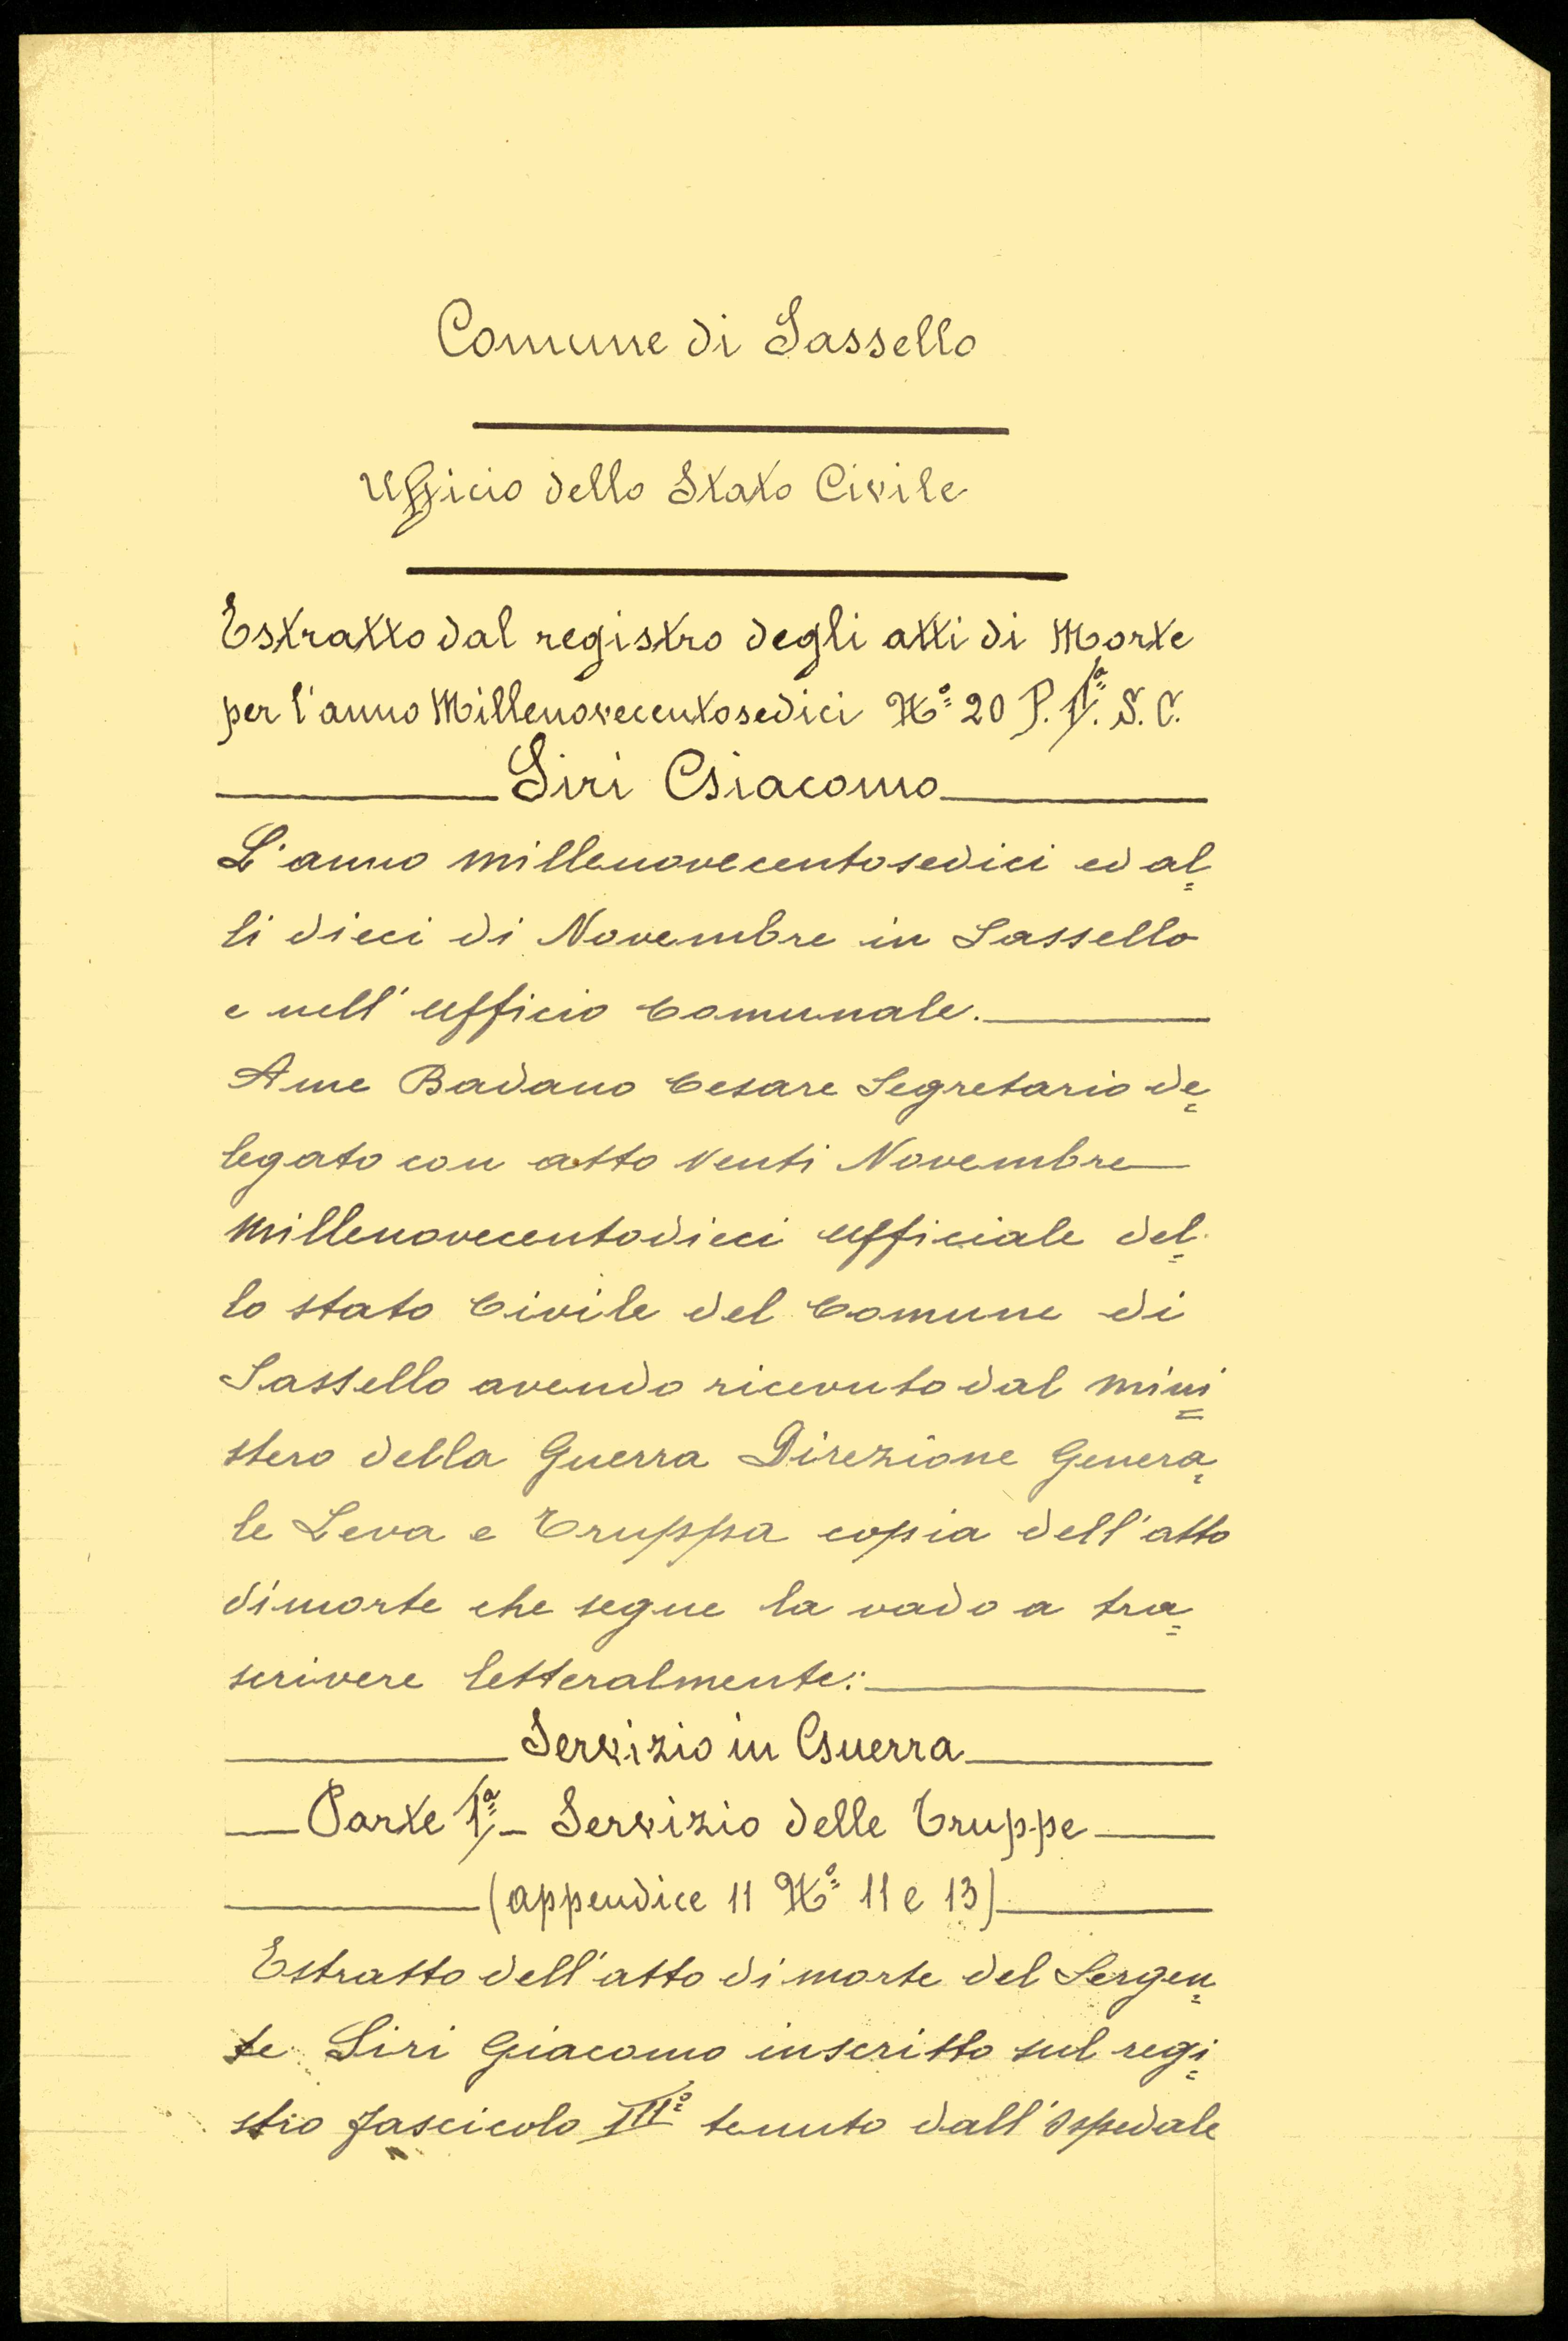 Comune di Sassello
Ufficio dello Stato Civile
Estratto dal registro degli atti di Morte
per l'anno Millenovecentosedici N° 20 P. IIª. S. C.
Siri Giacomo
L'anno millenovecentosedici ed al=
li dieci di Novembre in Sassello
e nell'ufficio Comunale.
A me Badano Cesare Segretario de=
legato con atto venti Novembre
millenovecentodieci ufficiale del=
lo stato Civile del Comune di
Sassello avendo ricevuto dal mini=
stero della Guerra Direzione Genera=
le Leva e Truppa copia dell'atto
di morte che segue la vado a tra=
scrivere letteralmente:
Servizio in Guerra
Parte 1ª - Servizio delle Truppe
(appendice 11 N° 11 e 13)
Estratto dell'atto di morte del Sergen=
te Siri Giacomo inscritto sul regi=
stro fascicolo III° tenuto dall'Ospedale